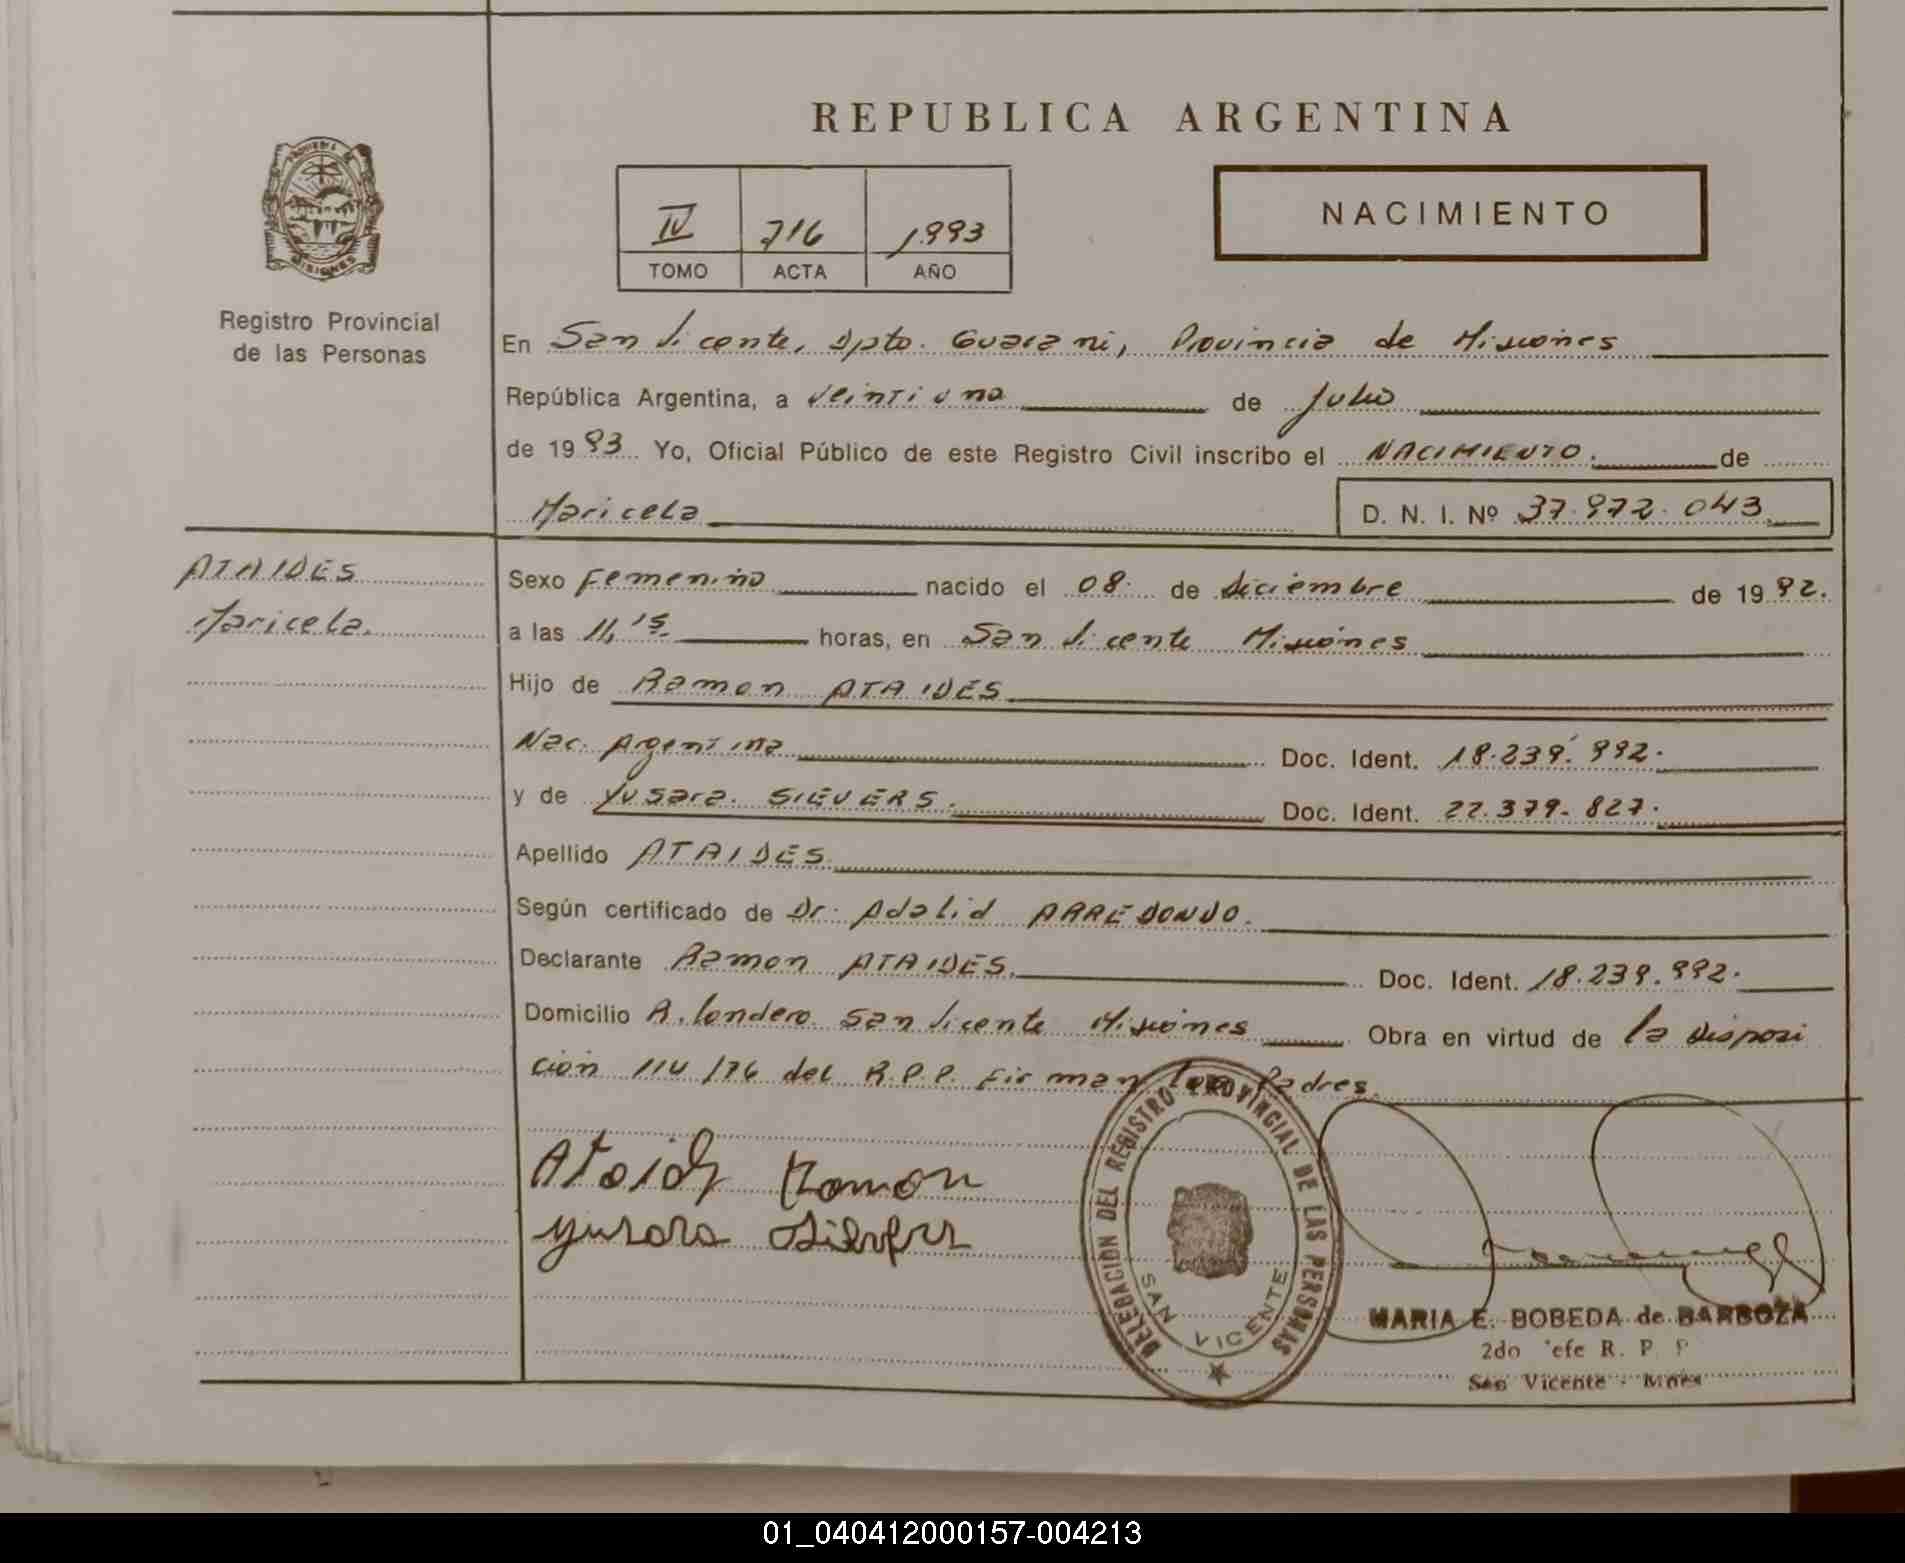 REPUBLICA ARGENTINA
PROVINCIA DE
MISIONES
Registro Provincial
de las Personas
IV 716 1993
TOMO ACTA AÑO
NACIMIENTO
En San Vicente, Dpto. Guarani, Provincia de Misiones
República Argentina, a veintiuno de Julio
de 1993 Yo, Oficial Público de este Registro Civil inscribo el NACIMIENTO. de
Maricela D. N. I. Nº 37.972.043
ATAIDES
Maricela.
Sexo Femenino nacido el 08 de Diciembre de 1992.
a las 11,15 horas, en San Vicente Misiones
Hijo de Ramon ATAIDES
Nac. Argentina Doc. Ident. 18.239.992.
y de Yusara SIEVERS. Doc. Ident. 22.379.827.
Apellido ATAIDES
Según certificado de Dr. Adalid ARREDONDO.
Declarante Ramon ATAIDES. Doc. Ident. 18.239.992.
Domicilio R. Londero San Vicente Misiones Obra en virtud de la Disposi
ción 114/76 del R.P.P. Firman los Padres.
Ataides Ramon
Yusara Sievers
DELEGACIÓN DEL REGISTRO PROVINCIAL DE LAS PERSONAS
SAN VICENTE
MARIA E. BOBEDA de BARBOZA
2do Jefe R. P. P
San Vicente - Mnes
01_040412000157-004213